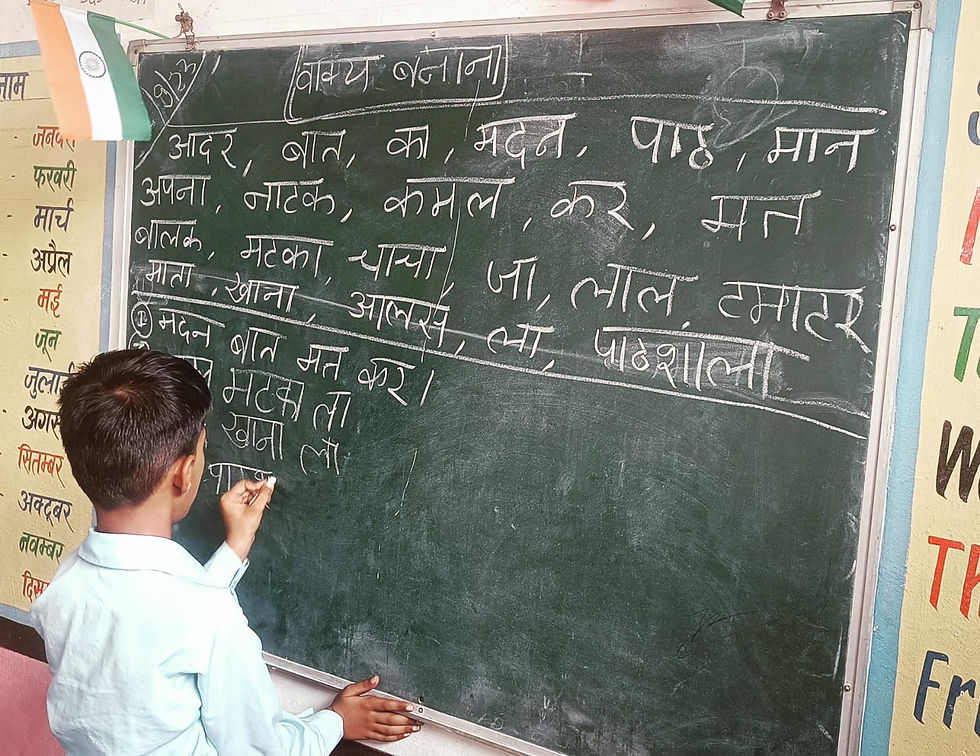 वाक्य बनाना
आदर, बात, का, मदन, पाठ, मान
अपना, नाटक, कमल, कर, मत
बालक, मटका, चाचा, जा, लाल, टमाटर
माता, खाना, आलस, ला, पाठशाला
① मदन बात मत कर।
मटका ला
खाना ला
नाम
जनवरी
फरवरी
मार्च
अप्रैल
मई
जून
जुलाई
अगस
सितम्बर
अक्टूबर
नवम्बर
दिस
W
Th
Fr